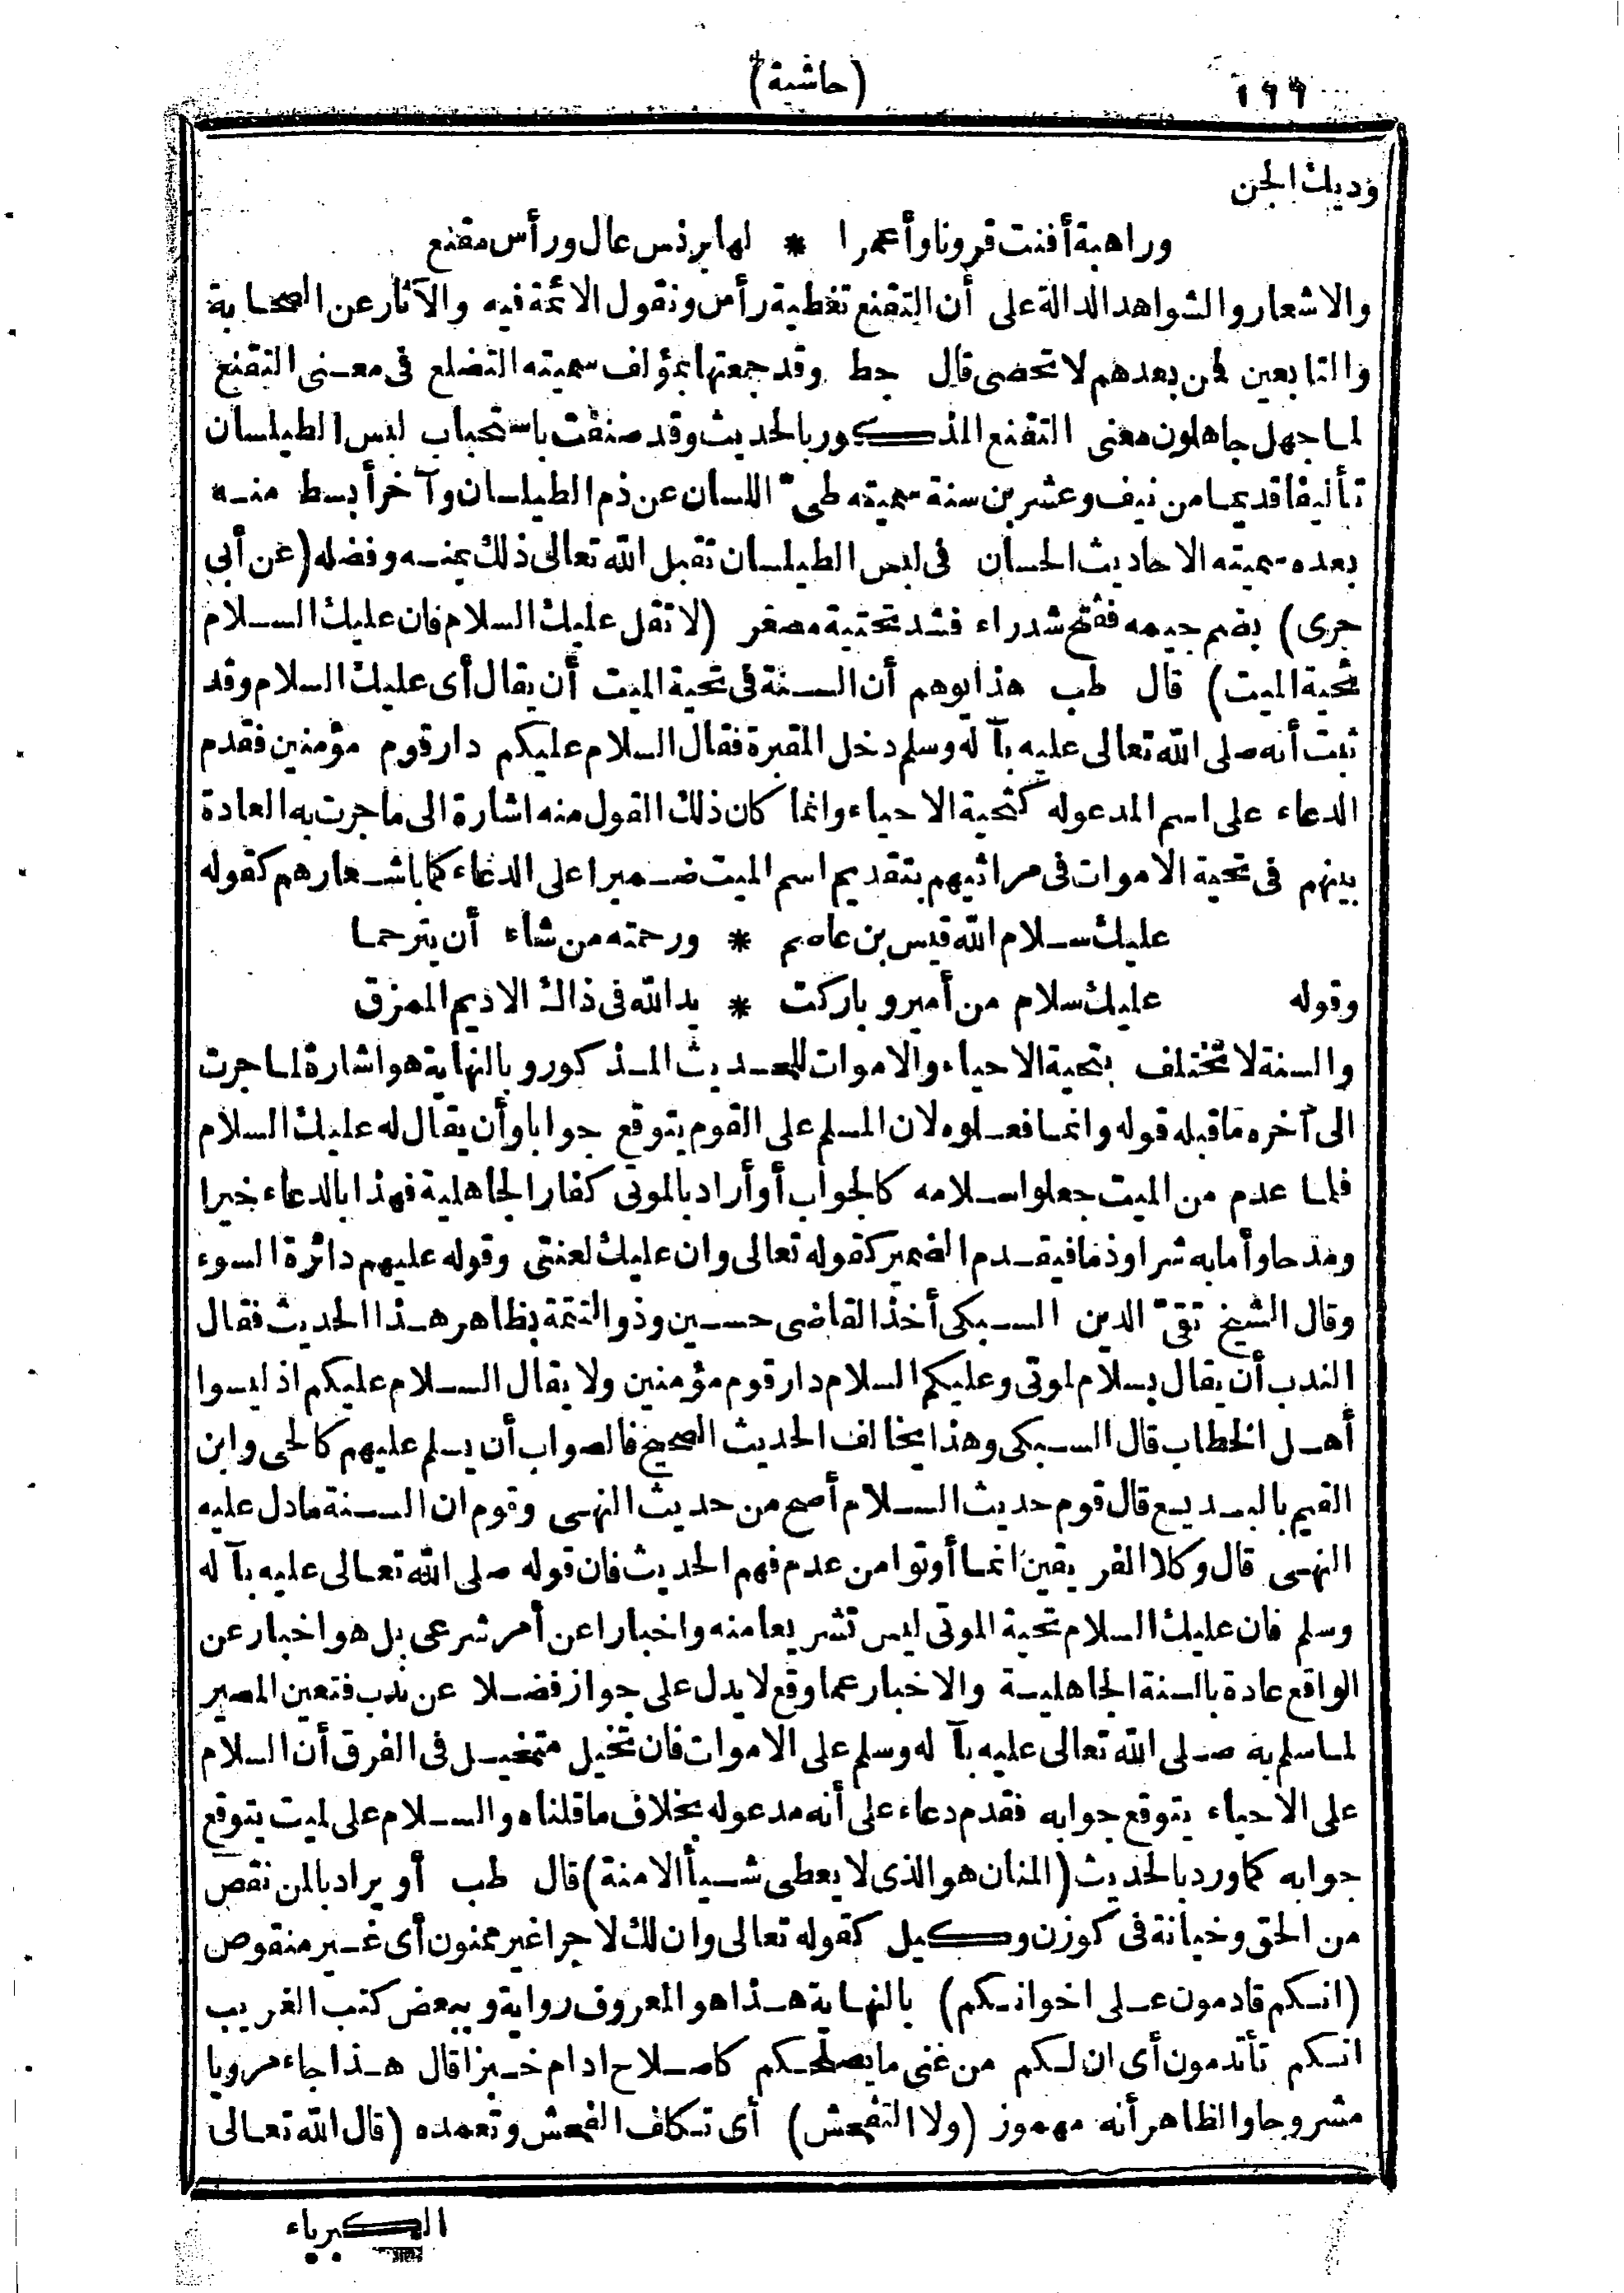 ١٩٩
(حاشية)
وديك الجن
وراهبة أفنت قرونا وأعمرا * لها برنس عال ورأس مقنع
والاشعار والشواهد الدالة على أن التقنع تغطية رأس ونقول الائمة فيه والآثار عن الصحابة
والتابعين فمن بعدهم لا تحصى قال حط وقد جمعتها بمؤلف سميته التضلع فى معنى التقنع
لما جهل جاهلون معنى التقنع المذكور بالحديث وقد صنفت باستحباب لبس الطيلسان
تأليفا قديما من نيف وعشرين سنة سميته طى اللسان عن ذم الطيلسان وآخر أبسط منه
بعده سميته الاحاديث الحسان فى لبس الطيلسان تقبل الله تعالى ذلك بمنه وفضله (عن أبى
جرى) بضم جيمه ففتح شدراء فشد تحتية مصغر (لا تقل عليك السلام فان عليك السلام
تحية الميت) قال طب هذا يوهم أن السنة فى تحية الميت أن يقال أى عليك السلام وقد
ثبت أنه صلى الله تعالى عليه بآله وسلم دخل المقبرة فقال السلام عليكم دار قوم مؤمنين فقدم
الدعاء على اسم المدعوله كتحية الاحياء وانما كان ذلك القول منه اشارة الى ما جرت به العادة
بينهم فى تحية الاموات فى مراثيهم بتقديم اسم الميت ضميرا على الدعاء كما باشعارهم كقوله
عليك سلام الله قيس بن عاصم * ورحمته من شاء أن يترحما
وقوله عليك سلام من أمير وباركت * يد الله فى ذاك الاديم الممزق
والسنة لا تختلف بتحية الاحياء والاموات للحديث المذكور وبالنهاية هو اشارة لما جرت
الى آخره ما قبله قوله وانما فعلوه لان المسلم على القوم يتوقع جوابا وأن يقال له عليك السلام
فلما عدم من الميت جعلوا سلامه كالجواب أو أراد بالموتى كفار الجاهلية فهذا بالدعاء خيرا
ومدحا وأما به شرا وذما فيقدم الضمير كقوله تعالى وان عليك لعنتى وقوله عليهم دائرة السوء
وقال الشيخ تقى الدين السبكى أخذ القاضى حسين وذو التتمة بظاهر هذا الحديث فقال
الندب أن يقال بسلام لموتى وعليكم السلام دار قوم مؤمنين ولا يقال السلام عليكم اذ ليسوا
أهل الخطاب قال السبكى وهذا يخالف الحديث الصحيح فالصواب أن يسلم عليهم كالحى وابن
القيم بالبديع قال قوم حديث السلام أصح من حديث النهى وقوم ان السنة ما دل عليه
النهى قال وكلا الفريقين انما أوتوا من عدم فهم الحديث فان قوله صلى الله تعالى عليه بآله
وسلم فان عليك السلام تحية الموتى ليس تشريعا منه واخبارا عن أمر شرعى بل هو اخبار عن
الواقع عادة بالسنة الجاهلية والاخبار عما وقع لا يدل على جواز فضلا عن ندب فتعين المصير
لما سلم به صلى الله تعالى عليه بآله وسلم على الاموات فان تخيل متخيل فى الفرق أن السلام
على الاحياء يتوقع جوابه فقدم دعاء على أنه مدعوله بخلاف ما قلناه والسلام على لميت يتوقع
جوابه كما ورد بالحديث (المنان هو الذى لا يعطى شيأ الامنة) قال طب أو يراد بالمن نقص
من الحق وخيانة فى كوزن وكيل كقوله تعالى وان لك لاجرا غير ممنون أى غير منقوص
(انكم قادمون على اخوانكم) بالنهاية هذا هو المعروف رواية وببعض كتب الغريب
انكم تأتدمون أى ان لكم من غنى ما يصلحكم كاصلاح ادام خبزا قال هذا جاء مرويا
مشروحا والظاهر أنه مهموز (ولا التفحش) أى تكلف الفحش وتعمده (قال الله تعالى
الكبرياء